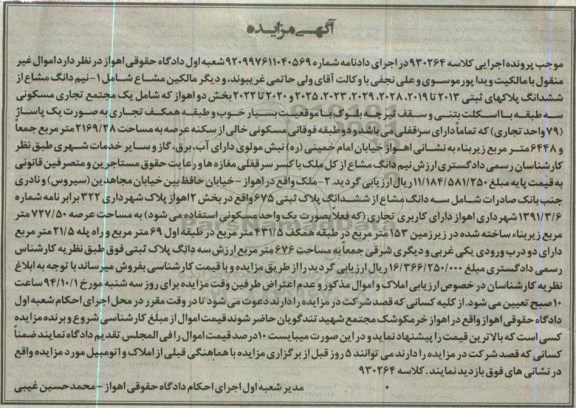 آگهی مزایده
موجب پرونده اجرایی کلاسه ۹۳۰۲۶۴ در اجرای دادنامه شماره ۹۲۰۹۹۷۶۱۱۰۴۰۵۶۹ شعبه اول دادگاه حقوقی اهواز در نظر دارد اموال غیر
منقول با مالکیت ویدا پور موسوی و علی نجفی با وکالت آقای ولی حاتمی غریبوند، و دیگر مالکین مشاع شامل ۱- نیم دانگ مشاع از
ششدانگ پلاکهای ثبتی ۲۰۱۳ تا ۲۰۱۹، ۲۰۲۸، ۲۰۲۹، ۲۰۲۳، ۲۰۲۵ و ۲۰۲۰ تا ۲۰۲۲ بخش دو اهواز که شامل یک مجتمع تجاری مسکونی
سه طبقه با اسکلت بتنی و سقف تیرچه بلوک با موقعیت بسیار خوب و طبقه همکف تجاری به صورت یک پاساژ
(۷۹ واحد تجاری) که تماماً دارای سرقفلی می باشد و دو طبقه فوقانی مسکونی خالی از سکنه عرصه به مساحت ۲۱۶۹/۲۸ متر مربع جمعاً
و ۶۴۴۸ متر مربع زیربنا به نشانی اهواز خیابان امام خمینی (ره) نبش مولوی دارای آب، برق، گاز و سایر خدمات شهری طبق نظر
کارشناسان رسمی دادگستری ارزش نیم دانگ مشاع از کل ملک با کسر سرقفلی مغازه ها و رعایت حقوق مستاجرین و متصرفین قانونی
به قیمت پایه مبلغ ۱۱/۱۸۴/۵۸۱/۲۵۰ ریال ارزیابی گردید. ۲- ملک واقع در اهواز - خیابان حافظ بین خیابان مجاهدین (سیروس) و نادری
جنب بانک صادرات شامل سه دانگ مشاع از ششدانگ پلاک ثبتی ۶۷۵ واقع در بخش ۲ اهواز پلاک شهرداری ۳۲۲ برابر نامه شماره
۱۳۹۱/۳/۶ شهرداری اهواز دارای کاربری تجاری (که فعلا بصورت یک واحد مسکونی استفاده می شود) به مساحت عرصه ۷۲۷/۵۰ متر
مربع زیربناء ساخته شده در زیرزمین ۱۵۳ متر مربع در طبقه همکف ۴۳۱/۵ متر مربع در طبقه اول ۶۹ متر مربع و راه پله ۲۱/۵ متر مربع
دارای دو درب ورودی یکی غربی و دیگری شرقی جمعاً به مساحت ۶۷۶ متر مربع ارزش سه دانگ پلاک ثبتی فوق طبق نظریه کارشناس
رسمی دادگستری مبلغ ۱۶/۳۶۶/۲۵۰/۰۰۰ ریال ارزیابی گردید را از طریق مزایده و با قیمت کارشناسی بفروش میرساند با توجه به ابلاغ
نظریه کارشناسان در خصوص ارزیابی املاک و اموال مذکور و عدم اعتراض طرفین وقت مزایده برای روز سه شنبه مورخ ۹۴/۱۰/۱ ساعت
۱۰ صبح تعیین می شود. از کلیه کسانی که قصد شرکت در مزایده را دارند دعوت می شود تا در وقت مقرر در محل اجرای احکام شعبه اول
دادگاه حقوقی اهواز واقع در اهواز خرمکوشک مجتمع شهید تندگویان حاضر شوند قیمت اموال از مبلغ کارشناسی شروع و برنده مزایده
کسی است که بالاترین قیمت را پیشنهاد نماید و در این صورت میبایست ۱۰ درصد قیمت اموال را فی المجلس تقدیم دادگاه نمایند ضمناً
کسانی که قصد شرکت در مزایده را دارند می توانند ۵ روز قبل از برگزاری مزایده با هماهنگی قبلی از املاک و اتومبیل مورد مزایده واقع
در نشانی های فوق بازدید نمایند. کلاسه ۹۳۰۲۶۴
مدیر شعبه اول اجرای احکام دادگاه حقوقی اهواز - محمدحسین غیبی